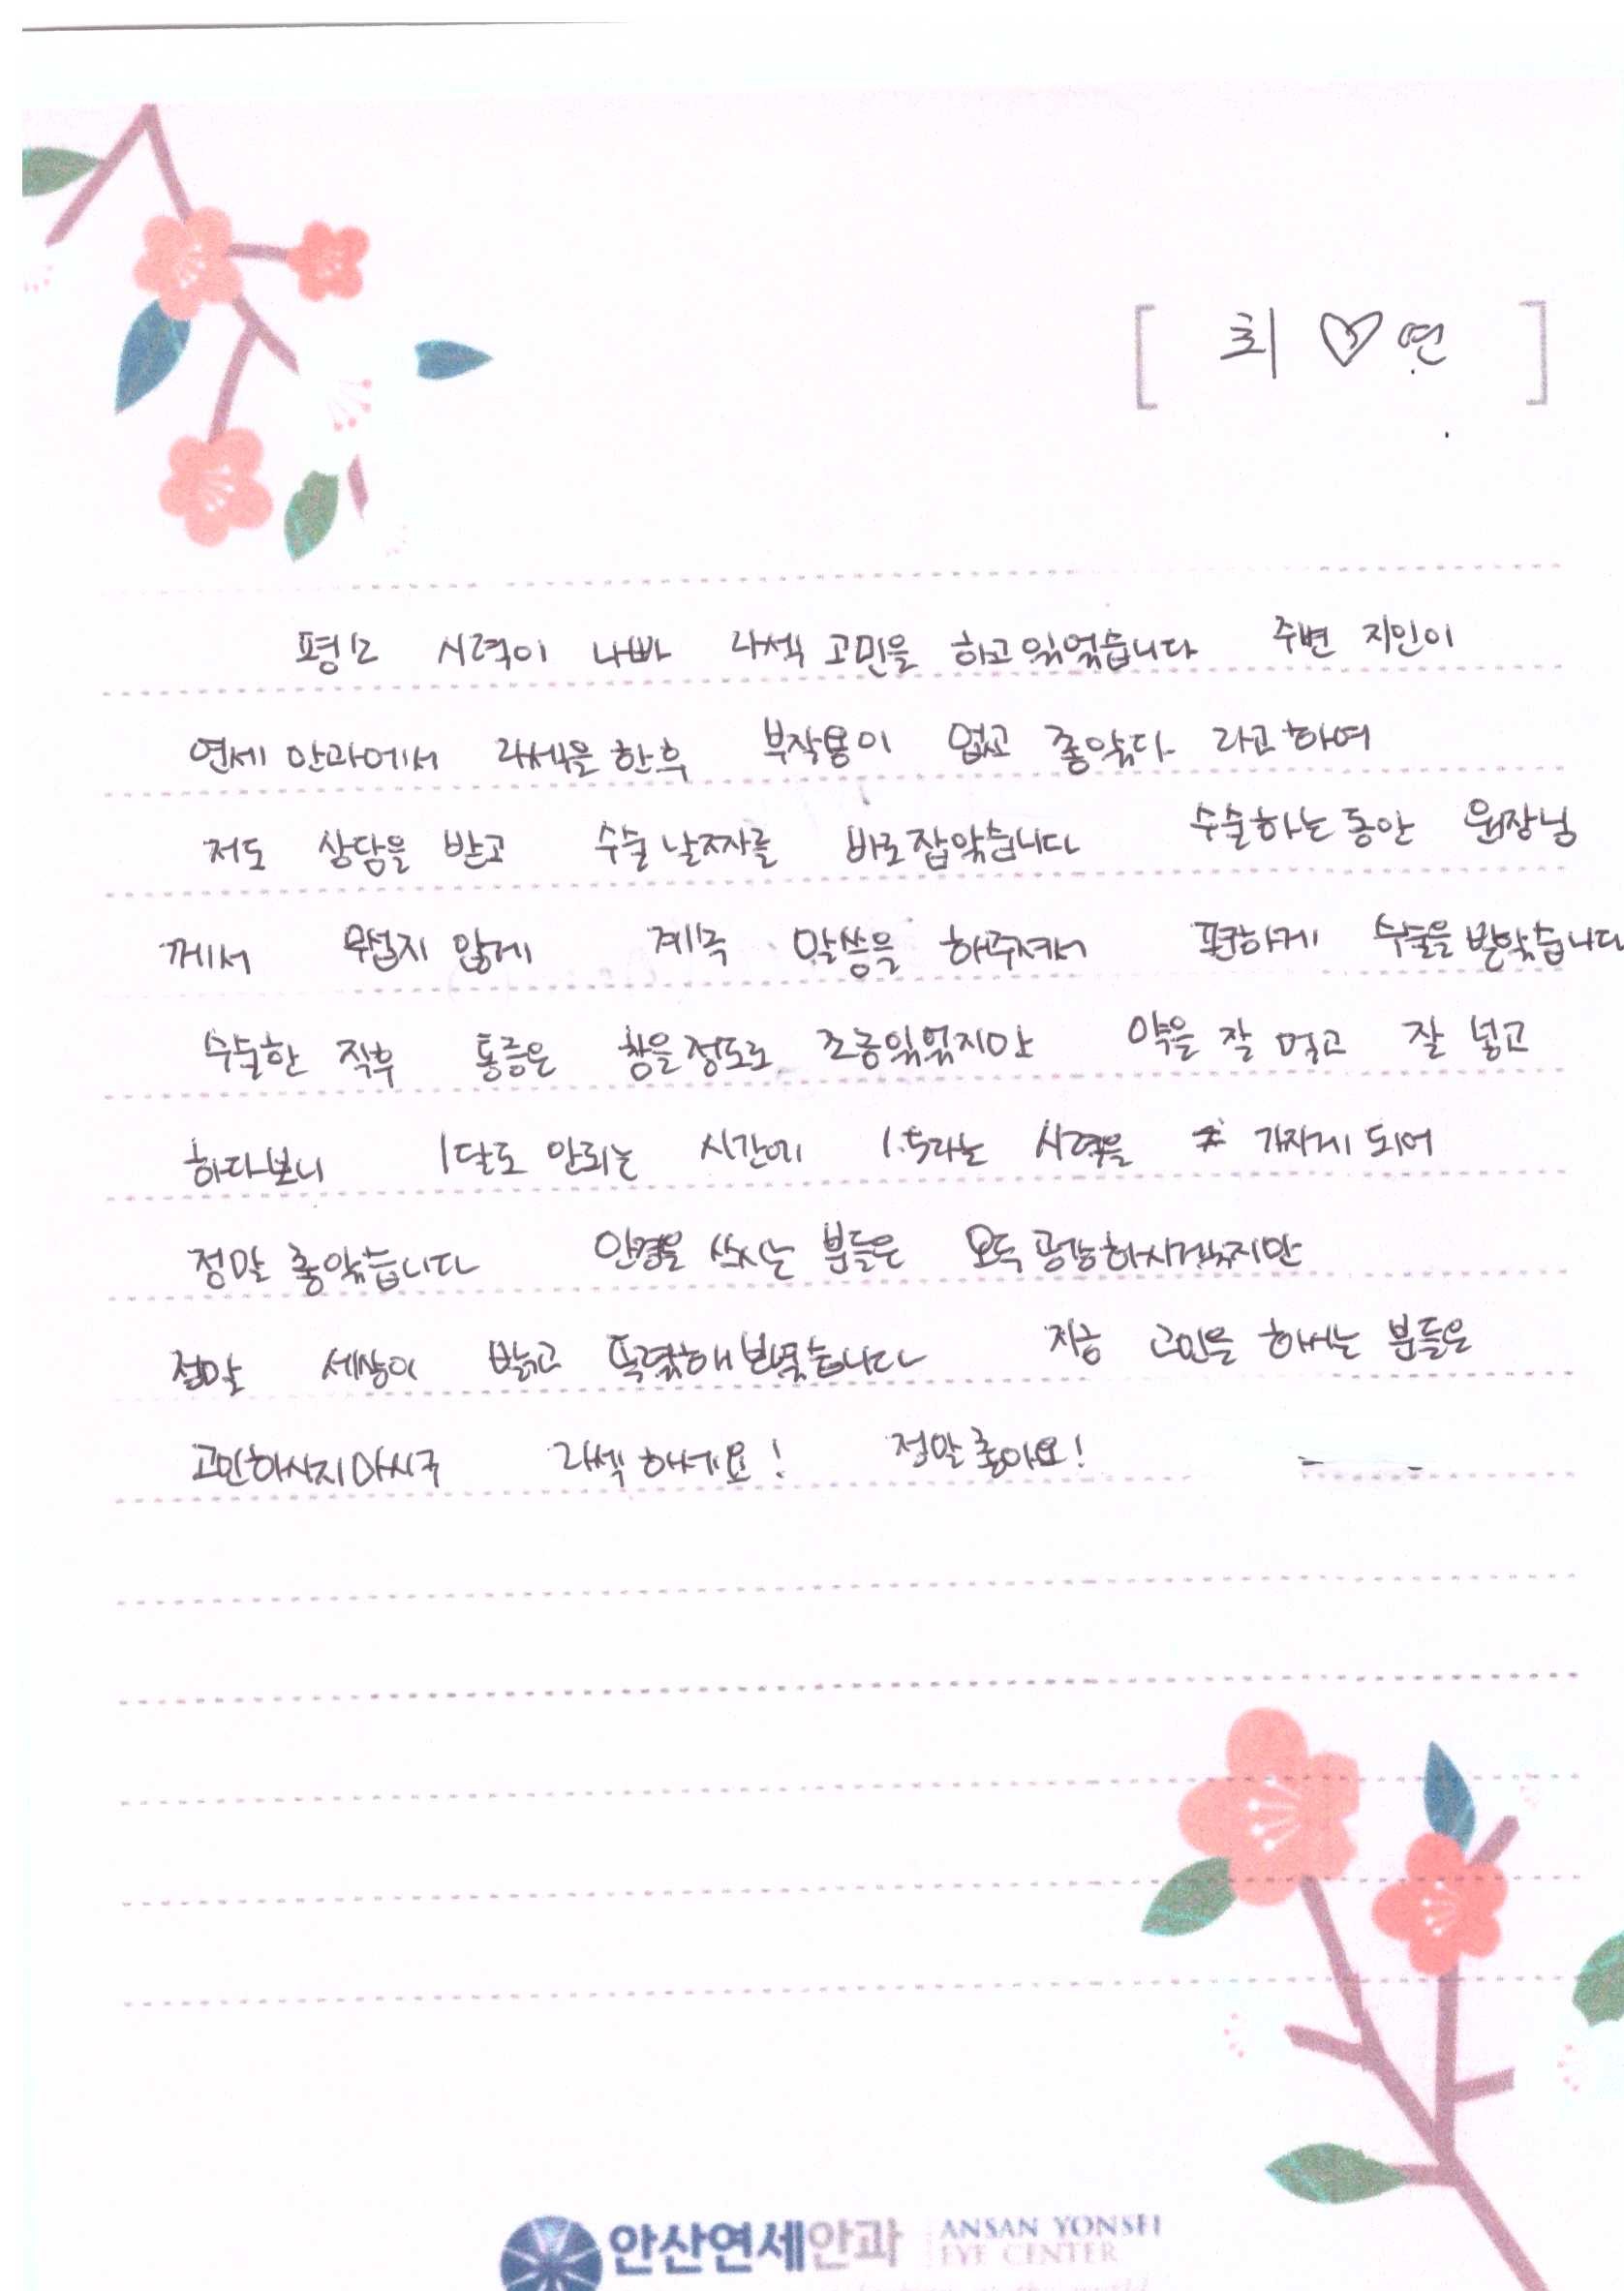 [ 최 ♡ 연 ]
평소 시력이 나빠 라섹 고민을 하고있었습니다 주변 지인이
연세 안과에서 라섹을 한후 부작용이 없고 좋았다 라고하여
저도 상담을 받고 수술 날짜를 바로잡았습니다 수술하는동안 원장님
께서 무섭지 않게 계속 말씀을 해주셔서 편하게 수술을받았습니다
수술한 직후 통증은 참을정도로 조금있었지만 약을 잘 먹고 잘 넣고
하다보니 1달도 안되는 시간에 1.5라는 시력을 가지게 되어
정말 좋았습니다 안경을 쓰시는 분들은 모두 공감하시겠지만
정말 세상이 밝고 뚜렷해 지금 고민을 하시는 분들은
고민하시지마시구 라섹 하세요! 정말좋아요!
안산연세안과 ANSAN YONSEI
EYE CENTER